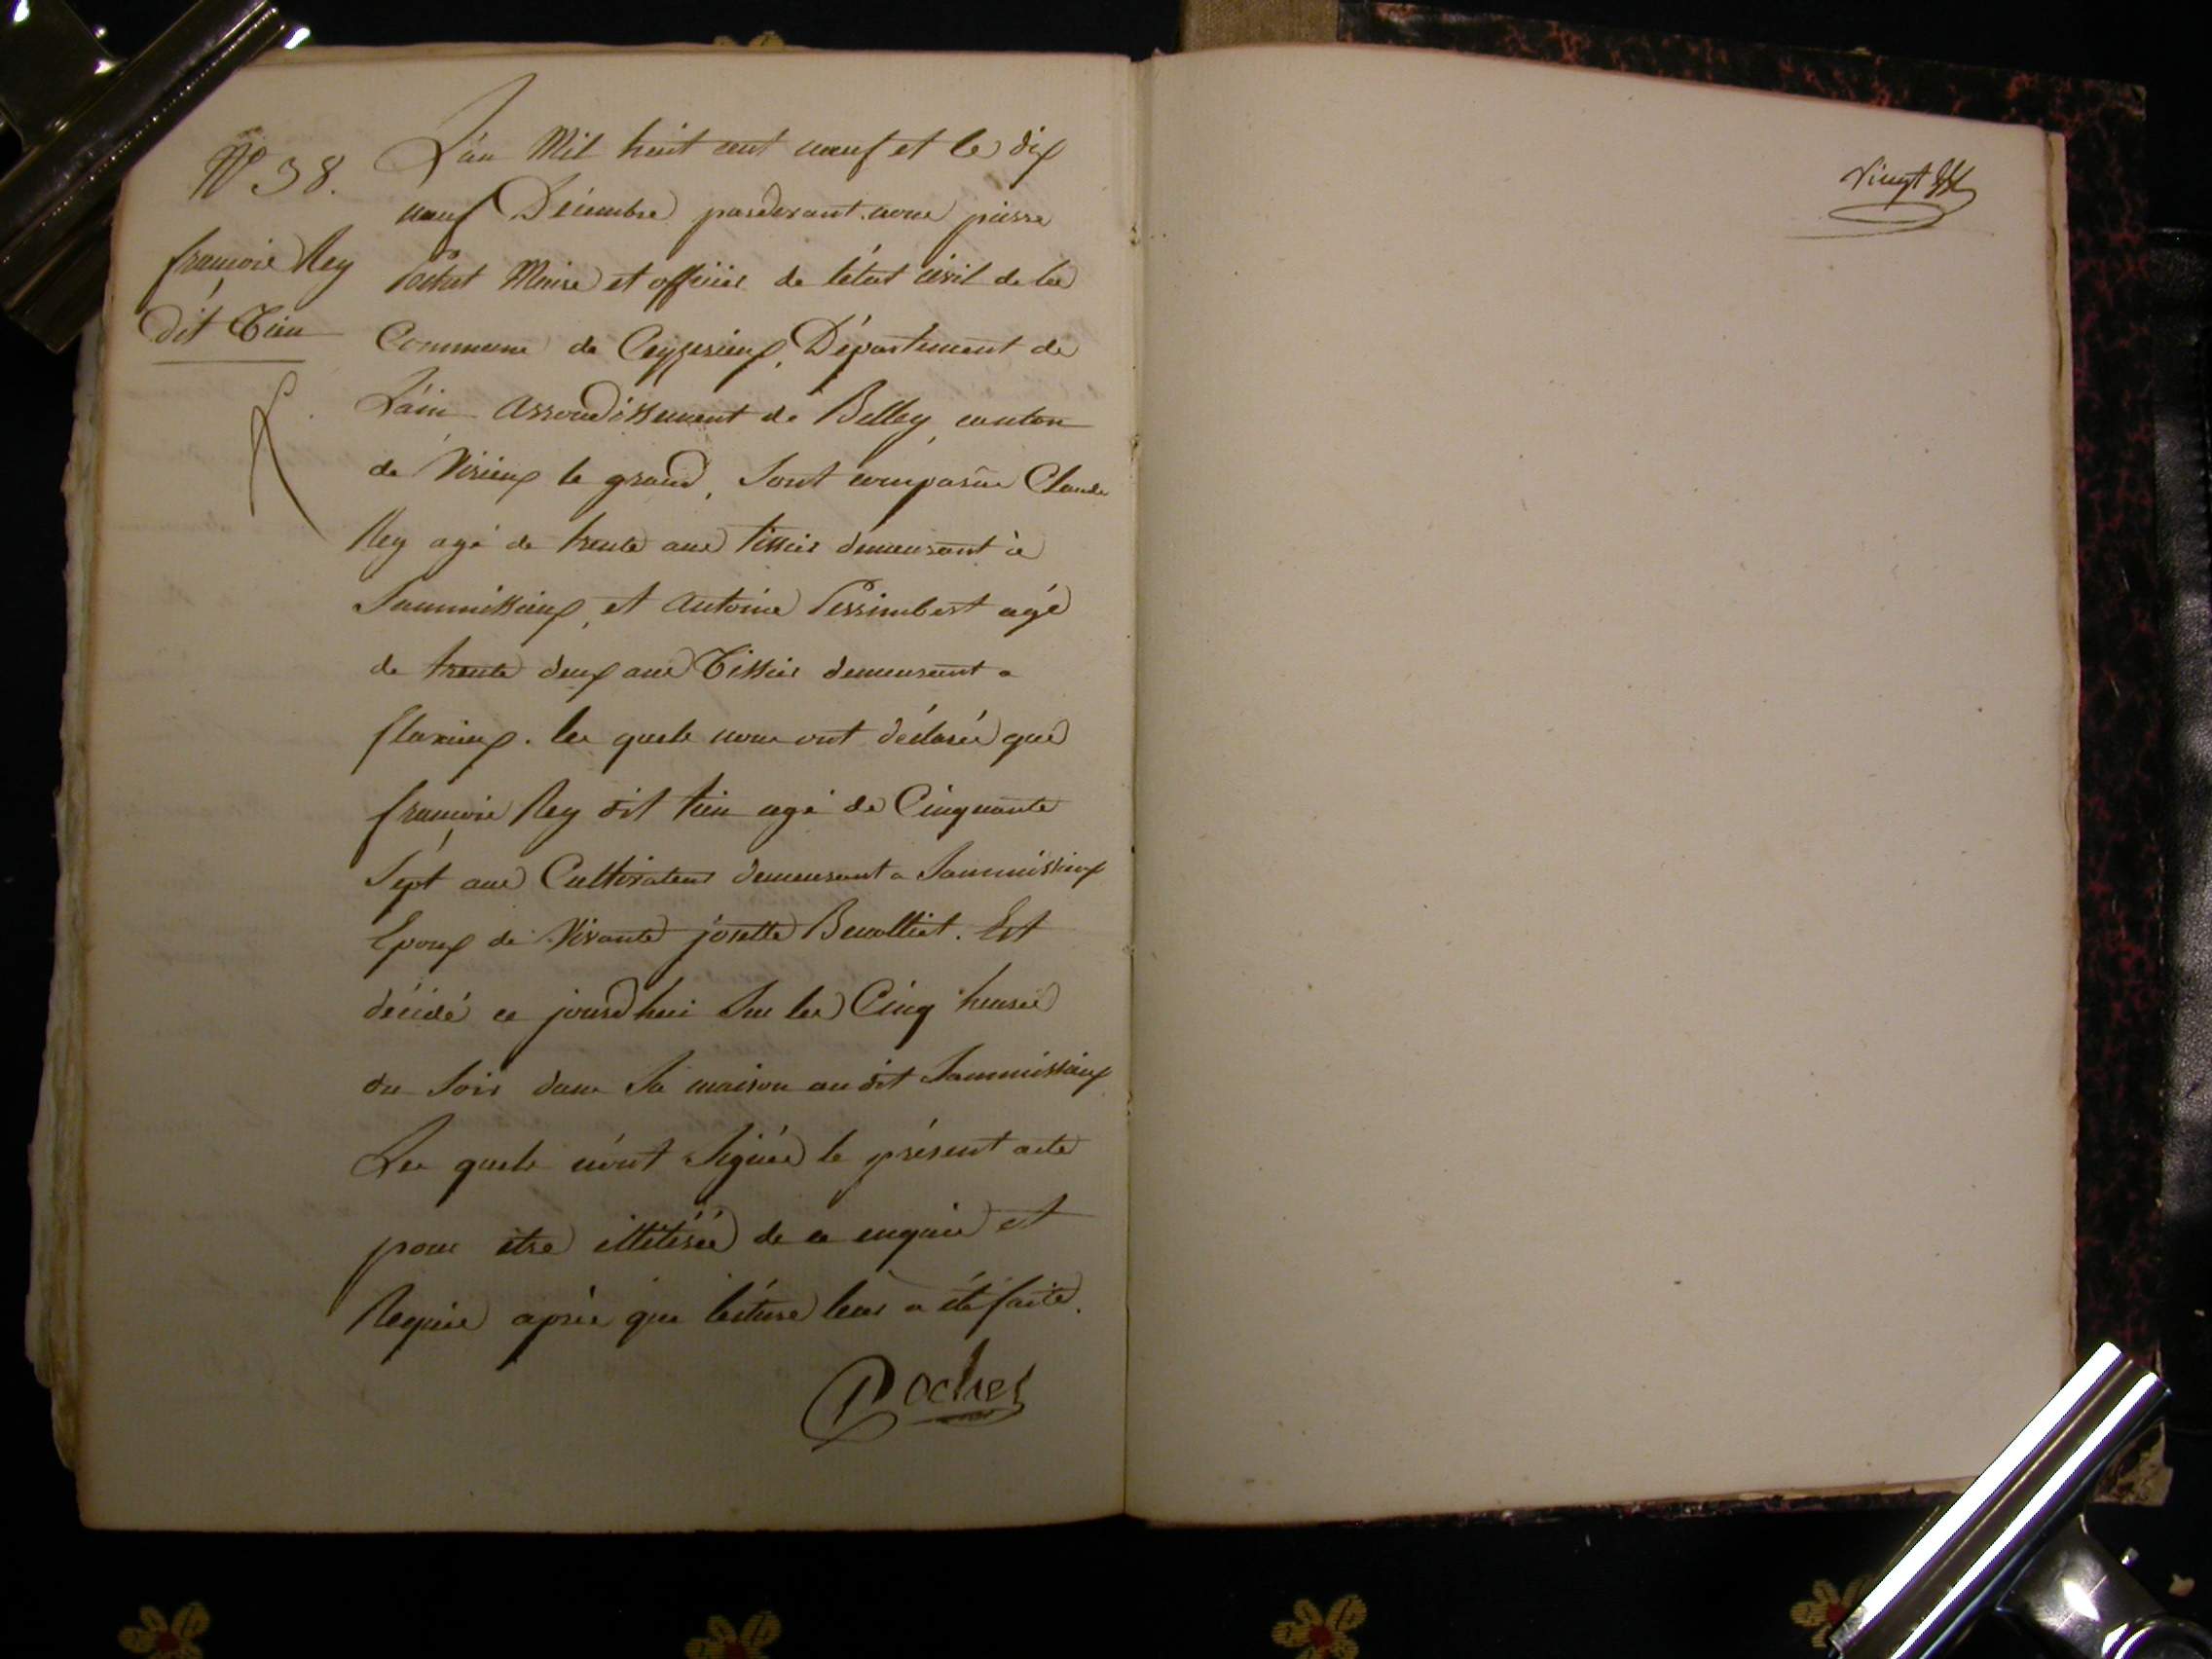 N° 38.
françois Rey
dit Tien
L'an Mil huit cent neuf et le dix
neuf Décembre pardevant nous pierre
Rochet Maire et officier de l'état civil de la
Commune de Ceyzerieux, Département de
L'ain Arrondissement de Belley, canton
de Virieux le grand, Sont comparus Claude
Rey agé de trente ans tissier demeurant à
Sammissieux, et Antoine Pessimbert agé
de trente deux ans Tissier demeurant a
flaxieux. les quels nous ont déclarés que
françois Rey dit tien agé de Cinquante
Sept ans Cultivateur demeurant a Sammissieux
Epoux de Vivante josette Benolliet. Est
décédé ce jourd'hui Sur les Cinq heures
du Soir dans Sa maison au dit Sammissieux
Les quels n'ont Signés le présent acte
pour être illétérés de ce enquis et
Requis après que lecture leur a été faite.
Rochet
Vingt